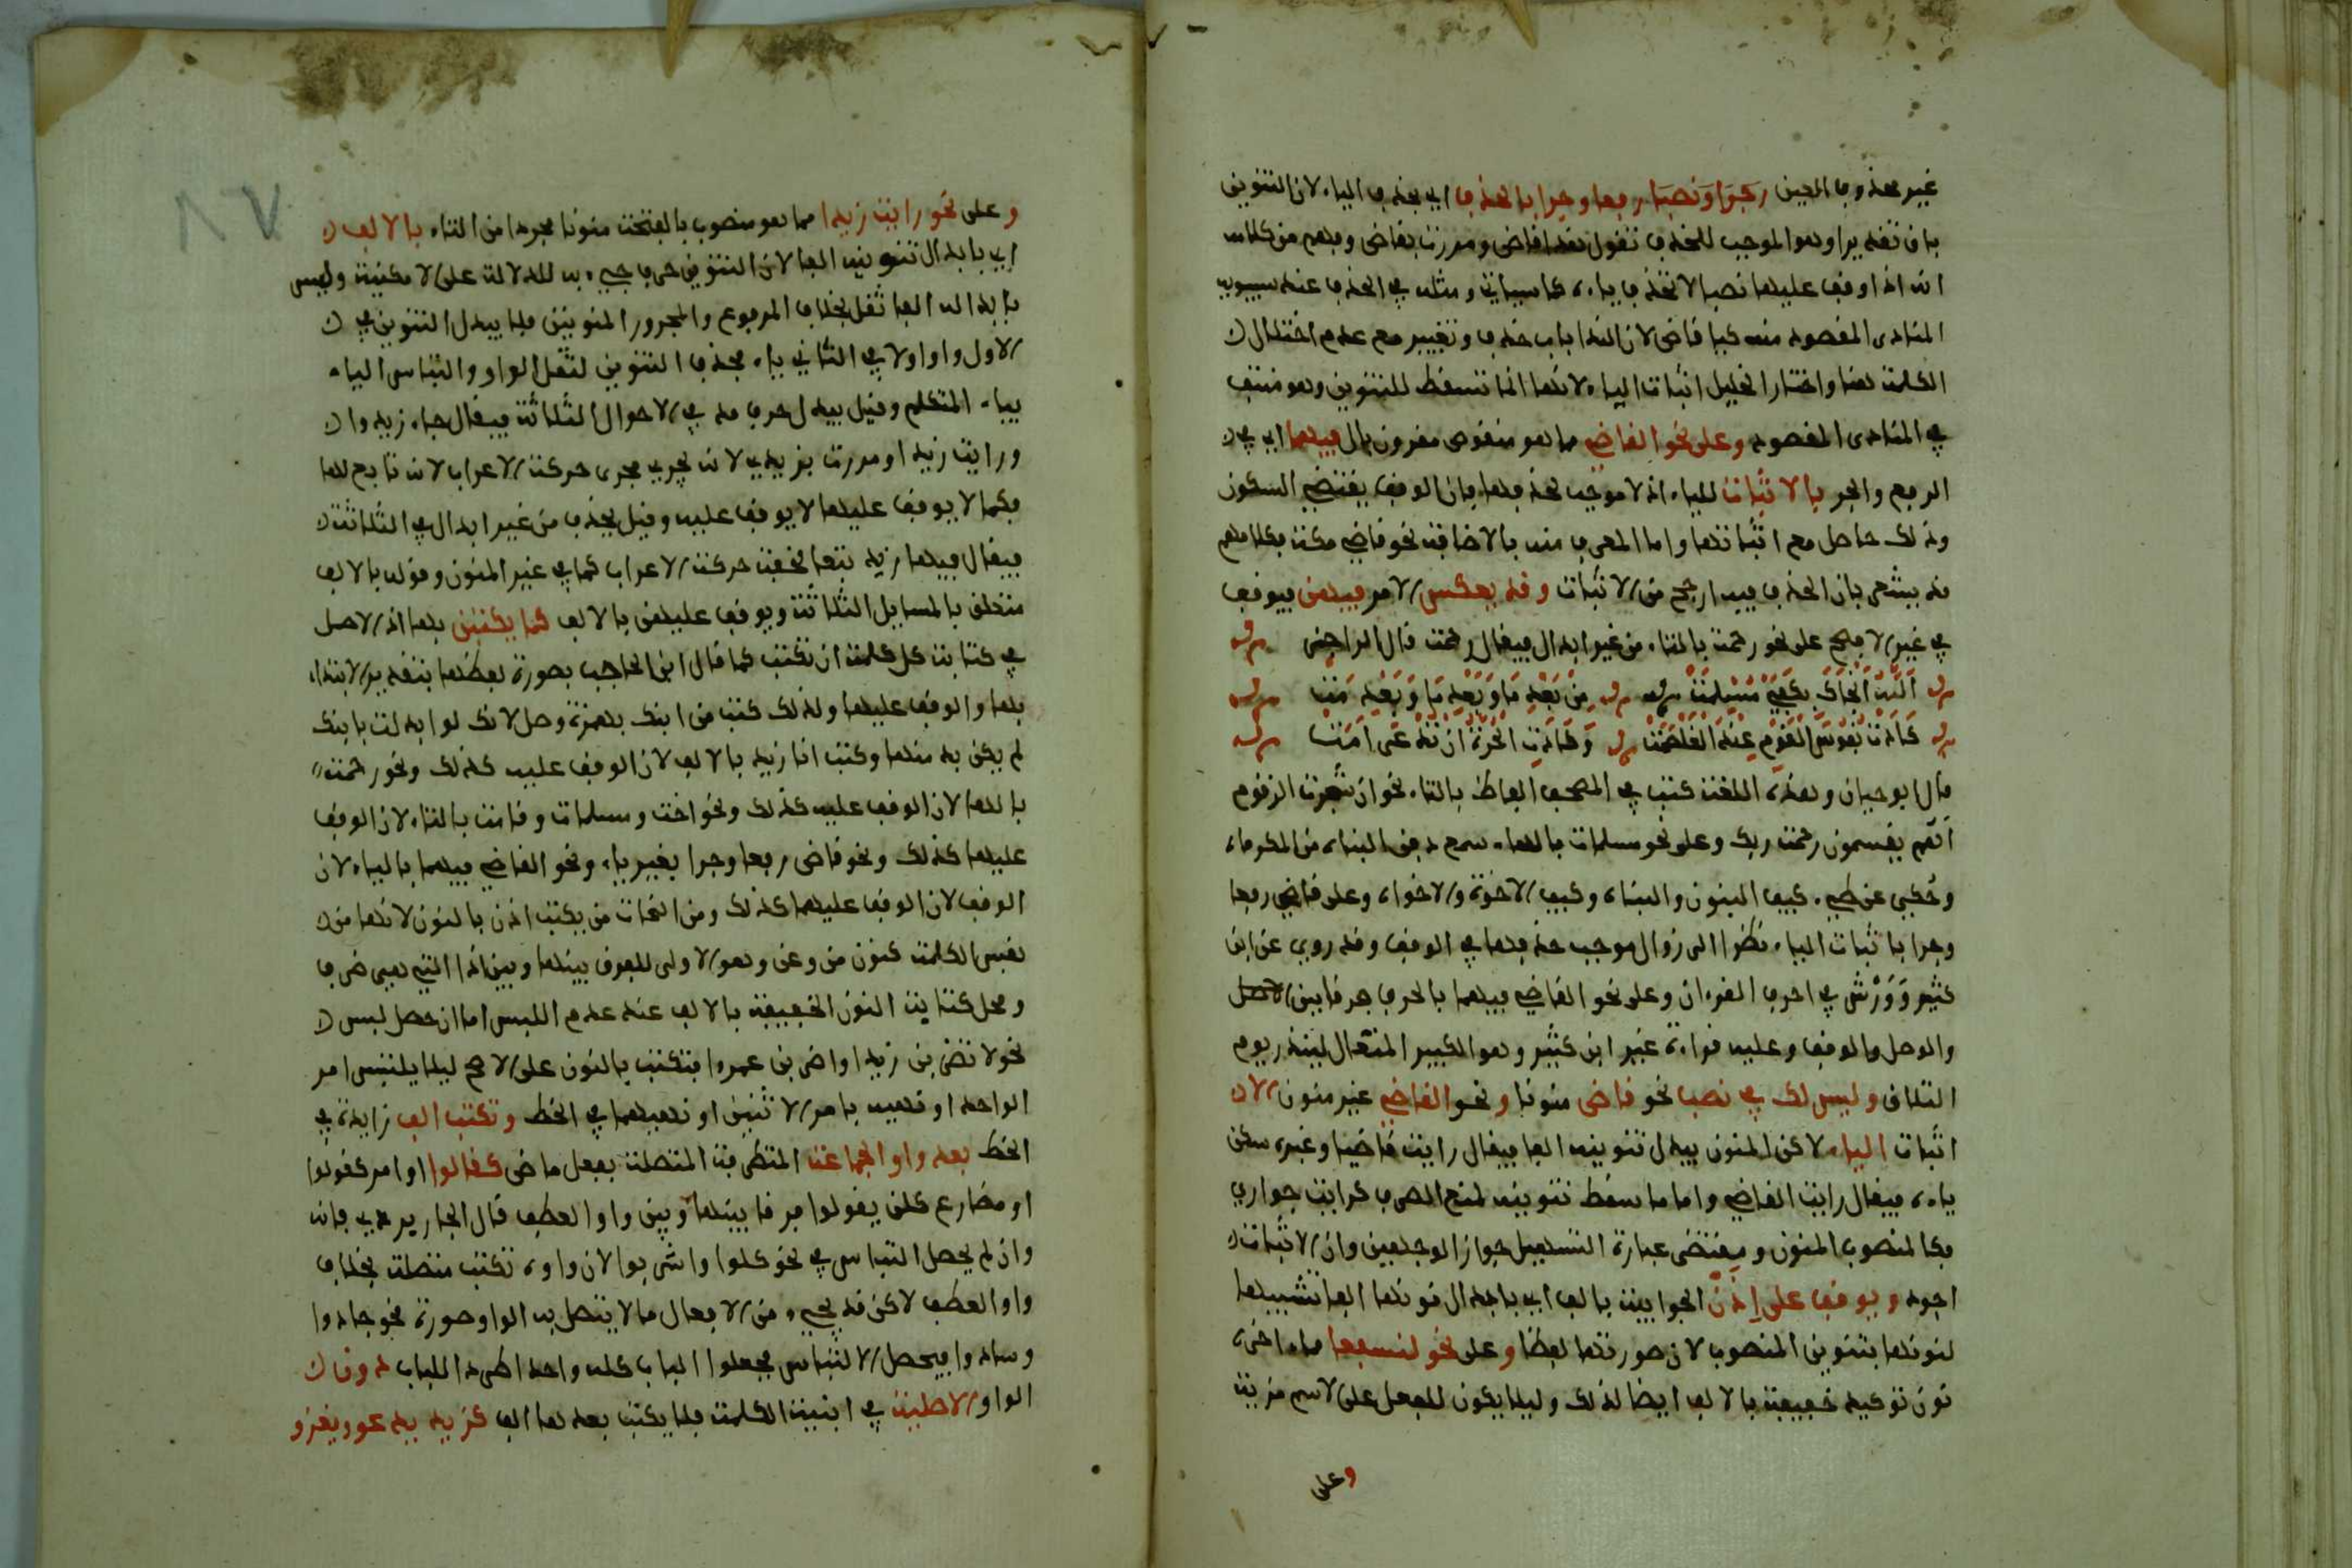 غير محذوف العين رفعا وجرا بالحذف اي بحذف الياء لان التنوين
باق تقديرا وهو الموجب للحذف تقول هذا قاض ومررت بقاض وفهم من كلامه
انه اذا وقف عليها نصبا لا تحذف ياءه كما سياتي ومثله في الحذف عند سيبويه
المنادى المقصود منه كيا قاض لان النداء باب حذف وتغيير مع عدم اختلال
الكلمة هنا واختار الخليل اثبات الياء لانها انما تسقط للتنوين وهو منتف
في المنادى المقصود وعلى نحو القاضي مما هو منقوص مقرون بال فيهما اي في
الرفع والجر بالاثبات للياء اذ لا موجب لحذفها فان الوقف يقتضي السكون
وذلك حاصل مع اثباتها واما المعرف منه بالاضافة نحو قاضي مكة فكلامهم
قد يشعر بان الحذف فيه ارجح من الاثبات وقد يعكس الامر فيهن فيوقف
في غير الافصح على نحو رحمت بالتاء من غير ابدال فيقال رحمت قال الراجز
الله انجاك بكفي مسلمت من بعد ما وبعد ما وبعد مت
كادت نفوس القوم عند الغلصمت وكادت الحرة ان تدعى امت
قال ابو حيان وهذه اللغة كتب في المصحف الفاظ بالتاء نحو ان شجرت الزقوم
اهم يقسمون رحمت ربك وعلى نحو مسلمات بالهاء سمع دفن البناه من المكرماه
وحكي عن طيء كيف البنون والبناه وكيف الاخوة والاخواه وعلى قاض رفعا
وجرا باثبات الياء نظرا الى زوال موجب حذفها في الوقف وقد روي عن ابن
كثير وورش في احرف القرءان وعلى نحو القاضي فيهما بالحذف فرقا بين الاصل
والوصل والوقف وعليه قراءة غير ابن كثير وهو الكبير المتعال لينذر يوم
التلاق وليس لك في نصب نحو قاض منونا ونحو القاضي غير منون الا
اثبات الياء لاكن المنون يبدل تنوينه الفا فيقال رايت قاضيا وغيره سكن
ياءه فيقال رايت القاضي واما ما سقط تنوينه لمنع الصرف كرايت جواري
فكالمنصوب المنون ومقتضى عبارة التسهيل جواز الوجهين وان الاثبات
اجود ويوقف على اذن الجوابية بالف اي بابدال نونها الفا تشبيها
لنونها بتنوين المنصوب لان صورتها لفظا وعلى نحو لنسفعا مما ءاخره
نون توكيد خفيفة بالالف ايضا لذلك وليلا يكون للفعل على الاسم مزية
وعلى
وعلى نحو رايت زيدا مما هو منصوب بالفتحة منونا مجردا من التاء بالالف
اي بابدال تنوينه الفا لان التنوين حرف جيء به للدلالة على الامكنية وليس
بابداله الفا ثقل بخلاف المرفوع والمجرور المنونين فلا يبدل التنوين في
الاول واوا ولا في الثاني ياء بحذف التنوين لثقل الواو والتباس الياء
بياء المتكلم وقيل يبدل حرف مد في الاحوال الثلاثة فيقال جاء زيدوا
ورايت زيدا ومررت بزيدي لانه يجري مجرى حركة الاعراب لانه تابع لها
فكما لا يوقف عليها لا يوقف عليه وقيل يحذف من غير ابدال في الثلاثة
فيقال فيها زيد تبعا لحذف حركة الاعراب كما في غير المنون وقوله بالالف
متعلق بالمسايل الثلاثة ويوقف عليهن بالالف كما يكتبن بها اذ الاصل
في كتابة كل كلمة ان تكتب كما قال ابن الحاجب بصورة لفظها بتقدير الابتداء
بها والوقف عليها ولذلك كتب من ابنك بهمزة وصل لانك لو ابتدات بابنك
لم يكن بد منها وكتب انا زيد بالالف لان الوقف عليه كذلك ونحو رحمة
بالهاء لان الوقف عليه كذلك ونحو اخت ومسلمات وقامت بالتاء لان الوقف
عليها كذلك ونحو قاض رفعا وجرا بغير ياء ونحو القاضي فيهما بالياء لان
الوقف لان الوقف عليهما كذلك ومن النحاة من يكتب اذن بالنون لانها من
نفس الكلمة كنون من وعن وهو الاولى للفرق بينها وبين اذا التي هي ظرف
ومحل كتابة النون الخفيفة بالالف عند عدم اللبس اما ان حصل لبس
نحو لا تضربن زيدا واضربن عمروا فتكتب بالنون على الاصح ليلا يلتبس امر
الواحد او نهيه بامر الاثنين او نهيهما في الخط وتكتب الف زايدة في
الخط بعد واو الجماعة المتطرفة المتصلة بفعل ماض كقالوا او امر كقولوا
او مضارع كلن يقولوا فرقا بينها وبين واو العطف قال الجاربردي فانه
وان لم يحصل التباس في نحو كلوا واشربوا لان واوه تكتب متصلة بخلاف
واو العطف لاكن قد يجيء من الافعال ما لا يتصل به الواو صورة نحو جادوا
وسادوا فيحصل الالتباس فجعلوا الباب كله واحدا طردا للباب دون
الواو الاصلية في ابنية الكلمة فلا يكتب بعدها الف كزيد يدعو ويغزو